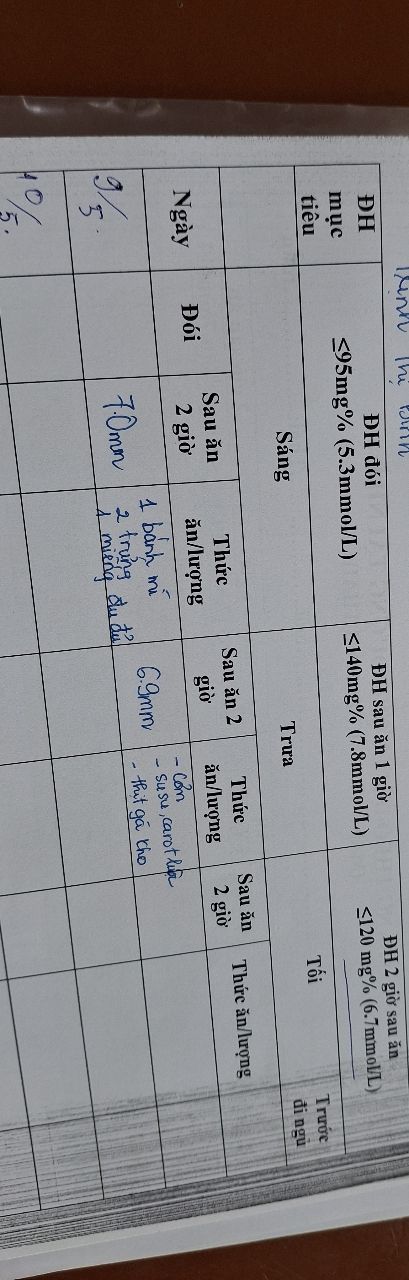 Thị Bình
ĐH mục tiêu
ĐH đói
≤95mg% (5.3mmol/L)
ĐH sau ăn 1 giờ
≤140mg% (7.8mmol/L)
ĐH 2 giờ sau ăn
≤120 mg% (6.7mmol/L)
Sáng
Trưa
Tối
Trước đi ngủ
Ngày
Đói
Sau ăn 2 giờ
Thức ăn/lượng
Sau ăn 2 giờ
Thức ăn/lượng
Sau ăn 2 giờ
Thức ăn/lượng
9/5.
7.0mm
1 bánh mì
2 trứng
1 miếng đu đủ
6.9mm
- Cơm
- susu, carot luộc
- thịt gà kho
10/5.